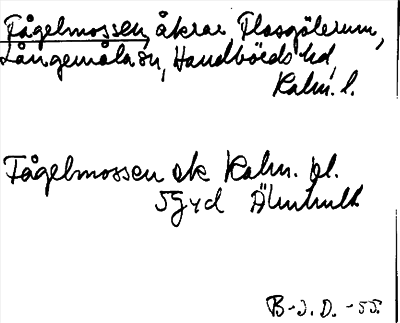 Fågelmossen, åkrar, Flasgölerum,
Långemåla sn, Handbörds hd,
Kalm. l.
Fågelmossen ek Kalm. pl.
5 Gyd Älmhult
B-J. D. -55.